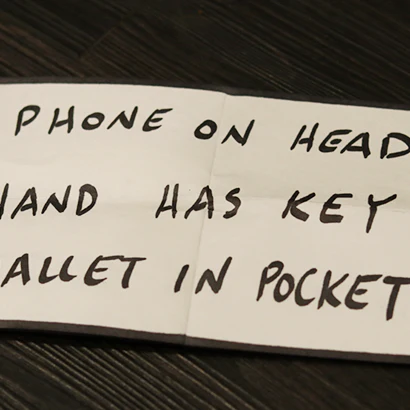 PHONE ON HEAD
HAND HAS KEY
ALLET IN POCKET